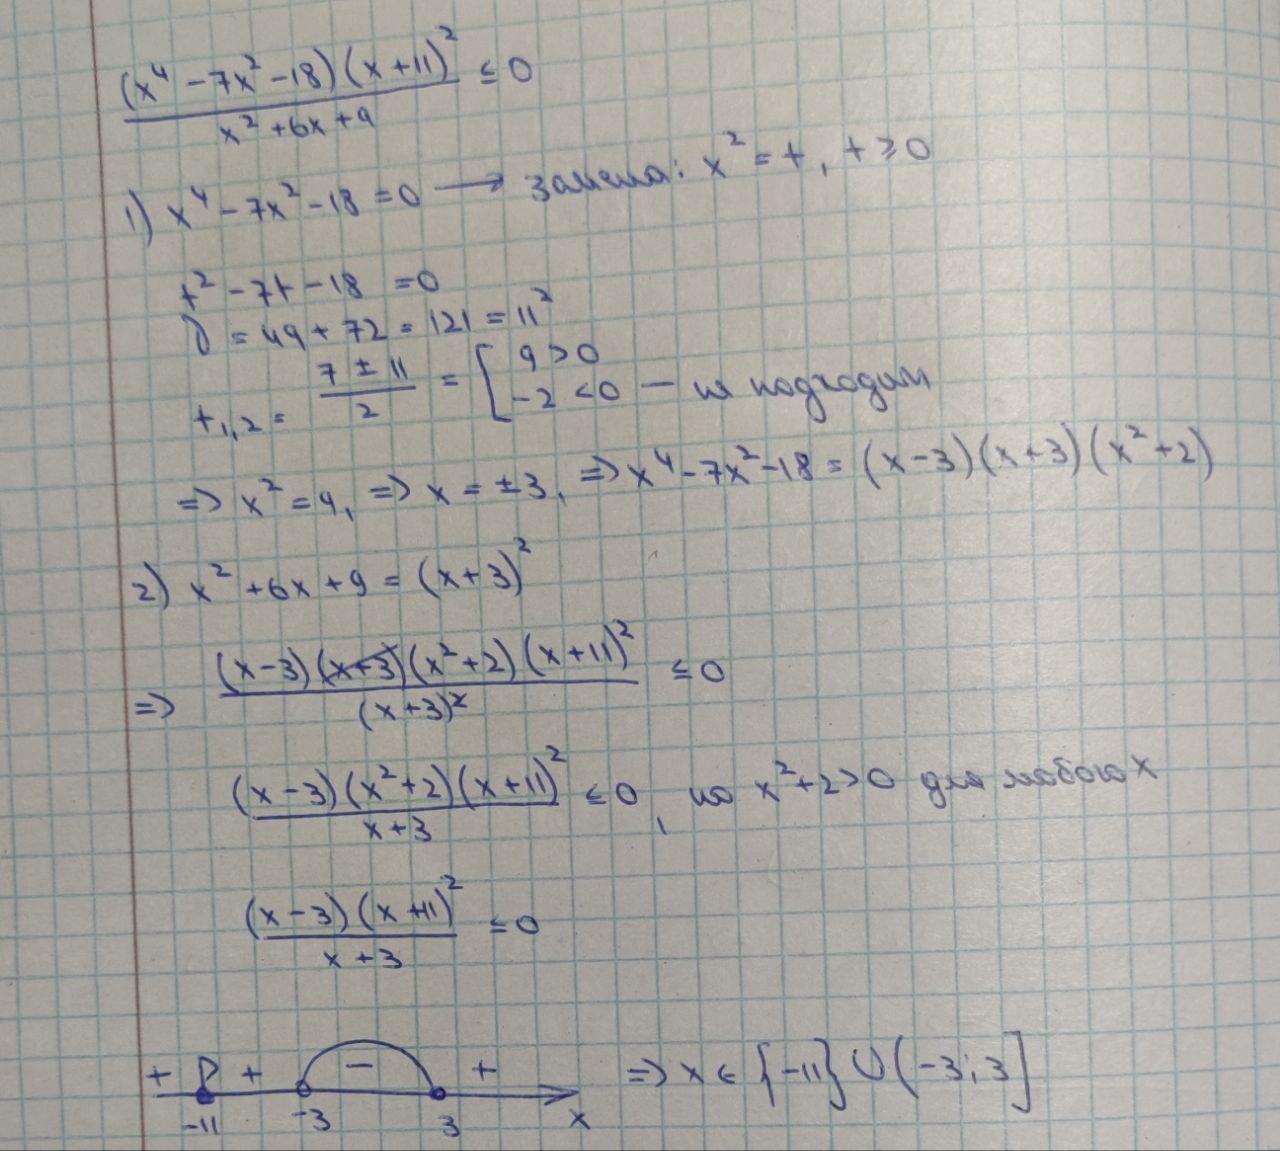 (x⁴ - 7x² - 18)(x + 11)² / x² + 6x + 9 ≤ 0
1) x⁴ - 7x² - 18 = 0 → замена: x² = t, t ≥ 0
t² - 7t - 18 = 0
D = 49 + 72 = 121 = 11²
t₁,₂ = 7 ± 11 / 2 = [ 9 > 0
-2 < 0 — не подходит
=> x² = 9, => x = ±3, => x⁴ - 7x² - 18 = (x - 3)(x + 3)(x² + 2)
2) x² + 6x + 9 = (x + 3)²
=> (x - 3)(x + 3)(x² + 2)(x + 11)² / (x + 3)² ≤ 0
(x - 3)(x² + 2)(x + 11)² / x + 3 ≤ 0, но x² + 2 > 0 для любого x
(x - 3)(x + 11)² / x + 3 ≤ 0
+ + − + => x ∈ {-11} ∪ (-3; 3]
-11 -3 3 x